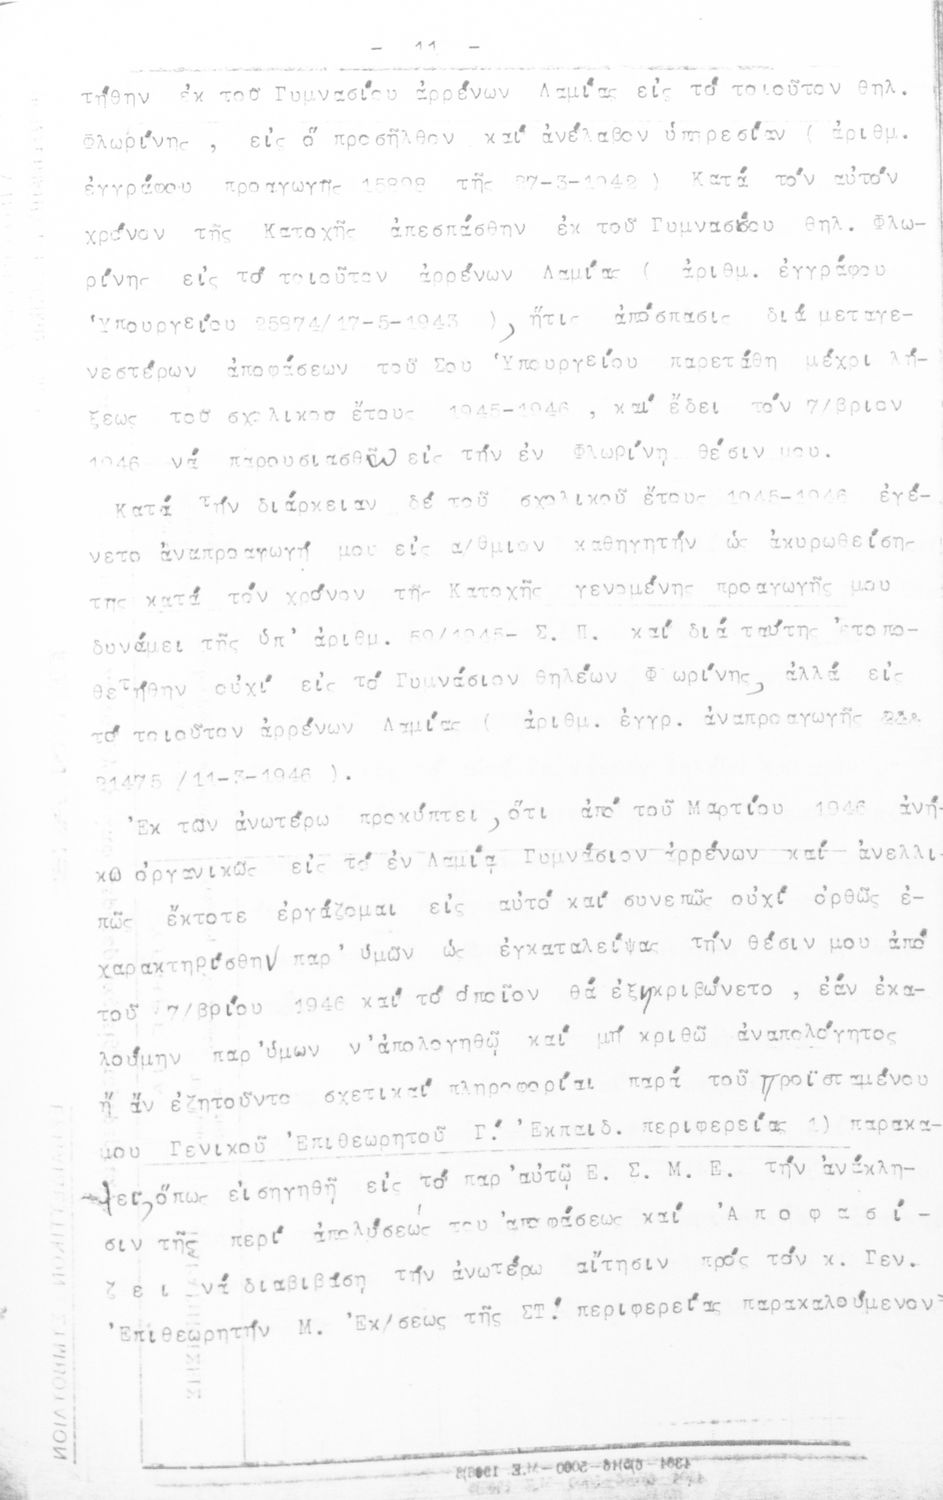 - 11 -
τήθην ἐκ τοῦ Γυμνασίου ἀρρένων Λαμίας εἰς τό τοιοῦτον θηλ.
Φλωρίνης , εἰς ὅ προσῆλθον καί ἀνέλαβον ὑπηρεσίαν ( ἀριθμ.
ἐγγράφου προαγωγῆς 15898 τῆς 27-3-1942 ) Κατά τόν αὐτόν
χρόνον τῆς Κατοχῆς ἀπεσπάσθην ἐκ τοῦ Γυμνασίου θηλ. Φλω-
ρίνης εἰς τό τοιοῦτον ἀρρένων Λαμίας ( ἀριθμ. ἐγγράφου
Ὑπουργείου 25874/17-5-1943 ), ἥτις ἀπόσπασις διά μεταγε-
νεστέρων ἀποφάσεων τοῦ Σου Ὑπουργείου παρετάθη μέχρι λή-
ξεως τοῦ σχολικοῦ ἔτους 1945-1946 , καί ἔδει τόν 7/βριον
1946 νά παρουσιασθῶ εἰς τήν ἐν Φλωρίνῃ θέσιν μου.
Κατά τήν διάρκειαν δέ τοῦ σχολικοῦ ἔτους 1945-1946 ἐγέ-
νετο ἀναπροαγωγή μου εἰς α/θμιον καθηγητήν ὡς ἀκυρωθείσης
της κατά τόν χρόνον τῆς Κατοχῆς γενομένης προαγωγῆς μου
δυνάμει τῆς ὑπ' ἀριθμ. 59/1945- Σ. Π. καί διά ταύτης ἐτοπο-
θετήθην οὐχί εἰς τό Γυμνάσιον θηλέων Φλωρίνης, ἀλλά εἰς
τό τοιοῦτον ἀρρένων Λαμίας ( ἀριθμ. ἐγγρ. ἀναπροαγωγῆς
21475 /11-3-1946 ).
Ἐκ τῶν ἀνωτέρω προκύπτει, ὅτι ἀπό τοῦ Μαρτίου 1946 ἀνή-
κω ὀργανικῶς εἰς τό ἐν Λαμίᾳ Γυμνάσιον ἀρρένων καί ἀνελλι-
πῶς ἔκτοτε ἐργάζομαι εἰς αὐτό καί συνεπῶς οὐχί ὀρθῶς ἐ-
χαρακτηρίσθην παρ' ὑμῶν ὡς ἐγκαταλείψας τήν θέσιν μου ἀπό
τοῦ 7/βρίου 1946 καί τό ὁποῖον θά ἐξηκριβώνετο , ἐάν ἐκα-
λούμην παρ'ὑμων ν'ἀπολογηθῶ καί μή κριθῶ ἀναπολόγητος
ἤ ἄν ἐζητοῦντο σχετικαί πληροφορίαι παρά τοῦ προϊσταμένου
μου Γενικοῦ Ἐπιθεωρητοῦ Γ.' Ἐκπαιδ. περιφερείας 1) παρακα-
λεῖ, ὅπως εἰσηγηθῇ εἰς τό παρ'αὐτῷ Ε. Σ. Μ. Ε. τήν ἀνάκλη-
σιν τῆς περί ἀπολύσεώς του ἀποφάσεως καί Ἀ π ο φ α σ ί -
ζ ε ι νά διαβιβάσῃ τήν ἀνωτέρω αἴτησιν πρός τόν κ. Γεν.
Ἐπιθεωρητήν Μ. Ἐκ/σεως τῆς ΣΤ.' περιφερείας παρακαλούμενον